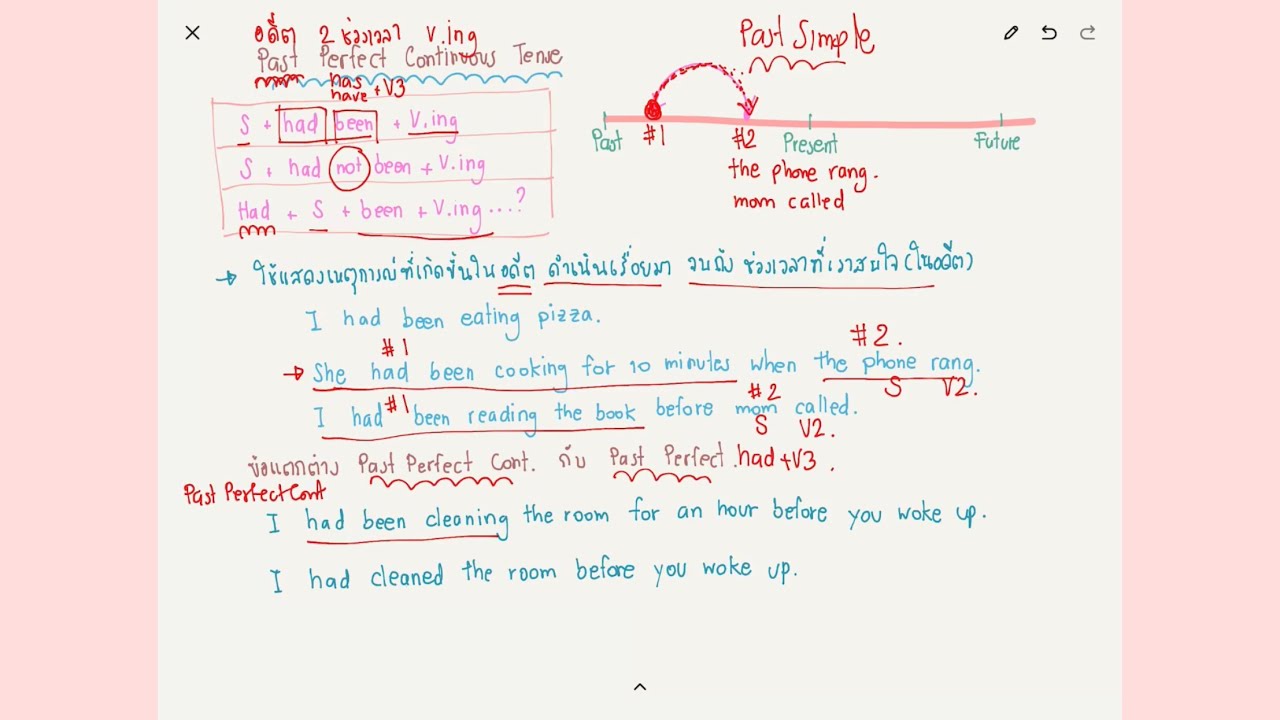 อดีต 2 ช่วงเวลา V.ing
Past Perfect Continuous Tense
has
have + V3
S + had been + V.ing
S + had not been + V.ing
Had + S + been + V.ing...?
Past Simple
Past #1 #2 Present Future
the phone rang.
mom called
→ ใช้แสดงเหตุการณ์ที่เกิดขึ้นในอดีต ดำเนินเรื่อยมา จนถึง ช่วงเวลาที่เราสนใจ (ในอดีต)
I had been eating pizza.
#1 #2.
→ She had been cooking for 10 minutes when the phone rang.
#1 #2 S V2.
I had been reading the book before mom called.
S V2.
ข้อแตกต่าง Past Perfect Cont. กับ Past Perfect. had + V3.
Past Perfect Cont
I had been cleaning the room for an hour before you woke up.
I had cleaned the room before you woke up.